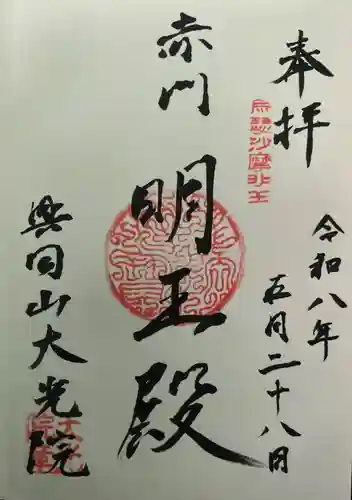 奉拝
烏瑟沙摩明王
令和八年
五月二十八日
赤門
明王殿
興国山大光院